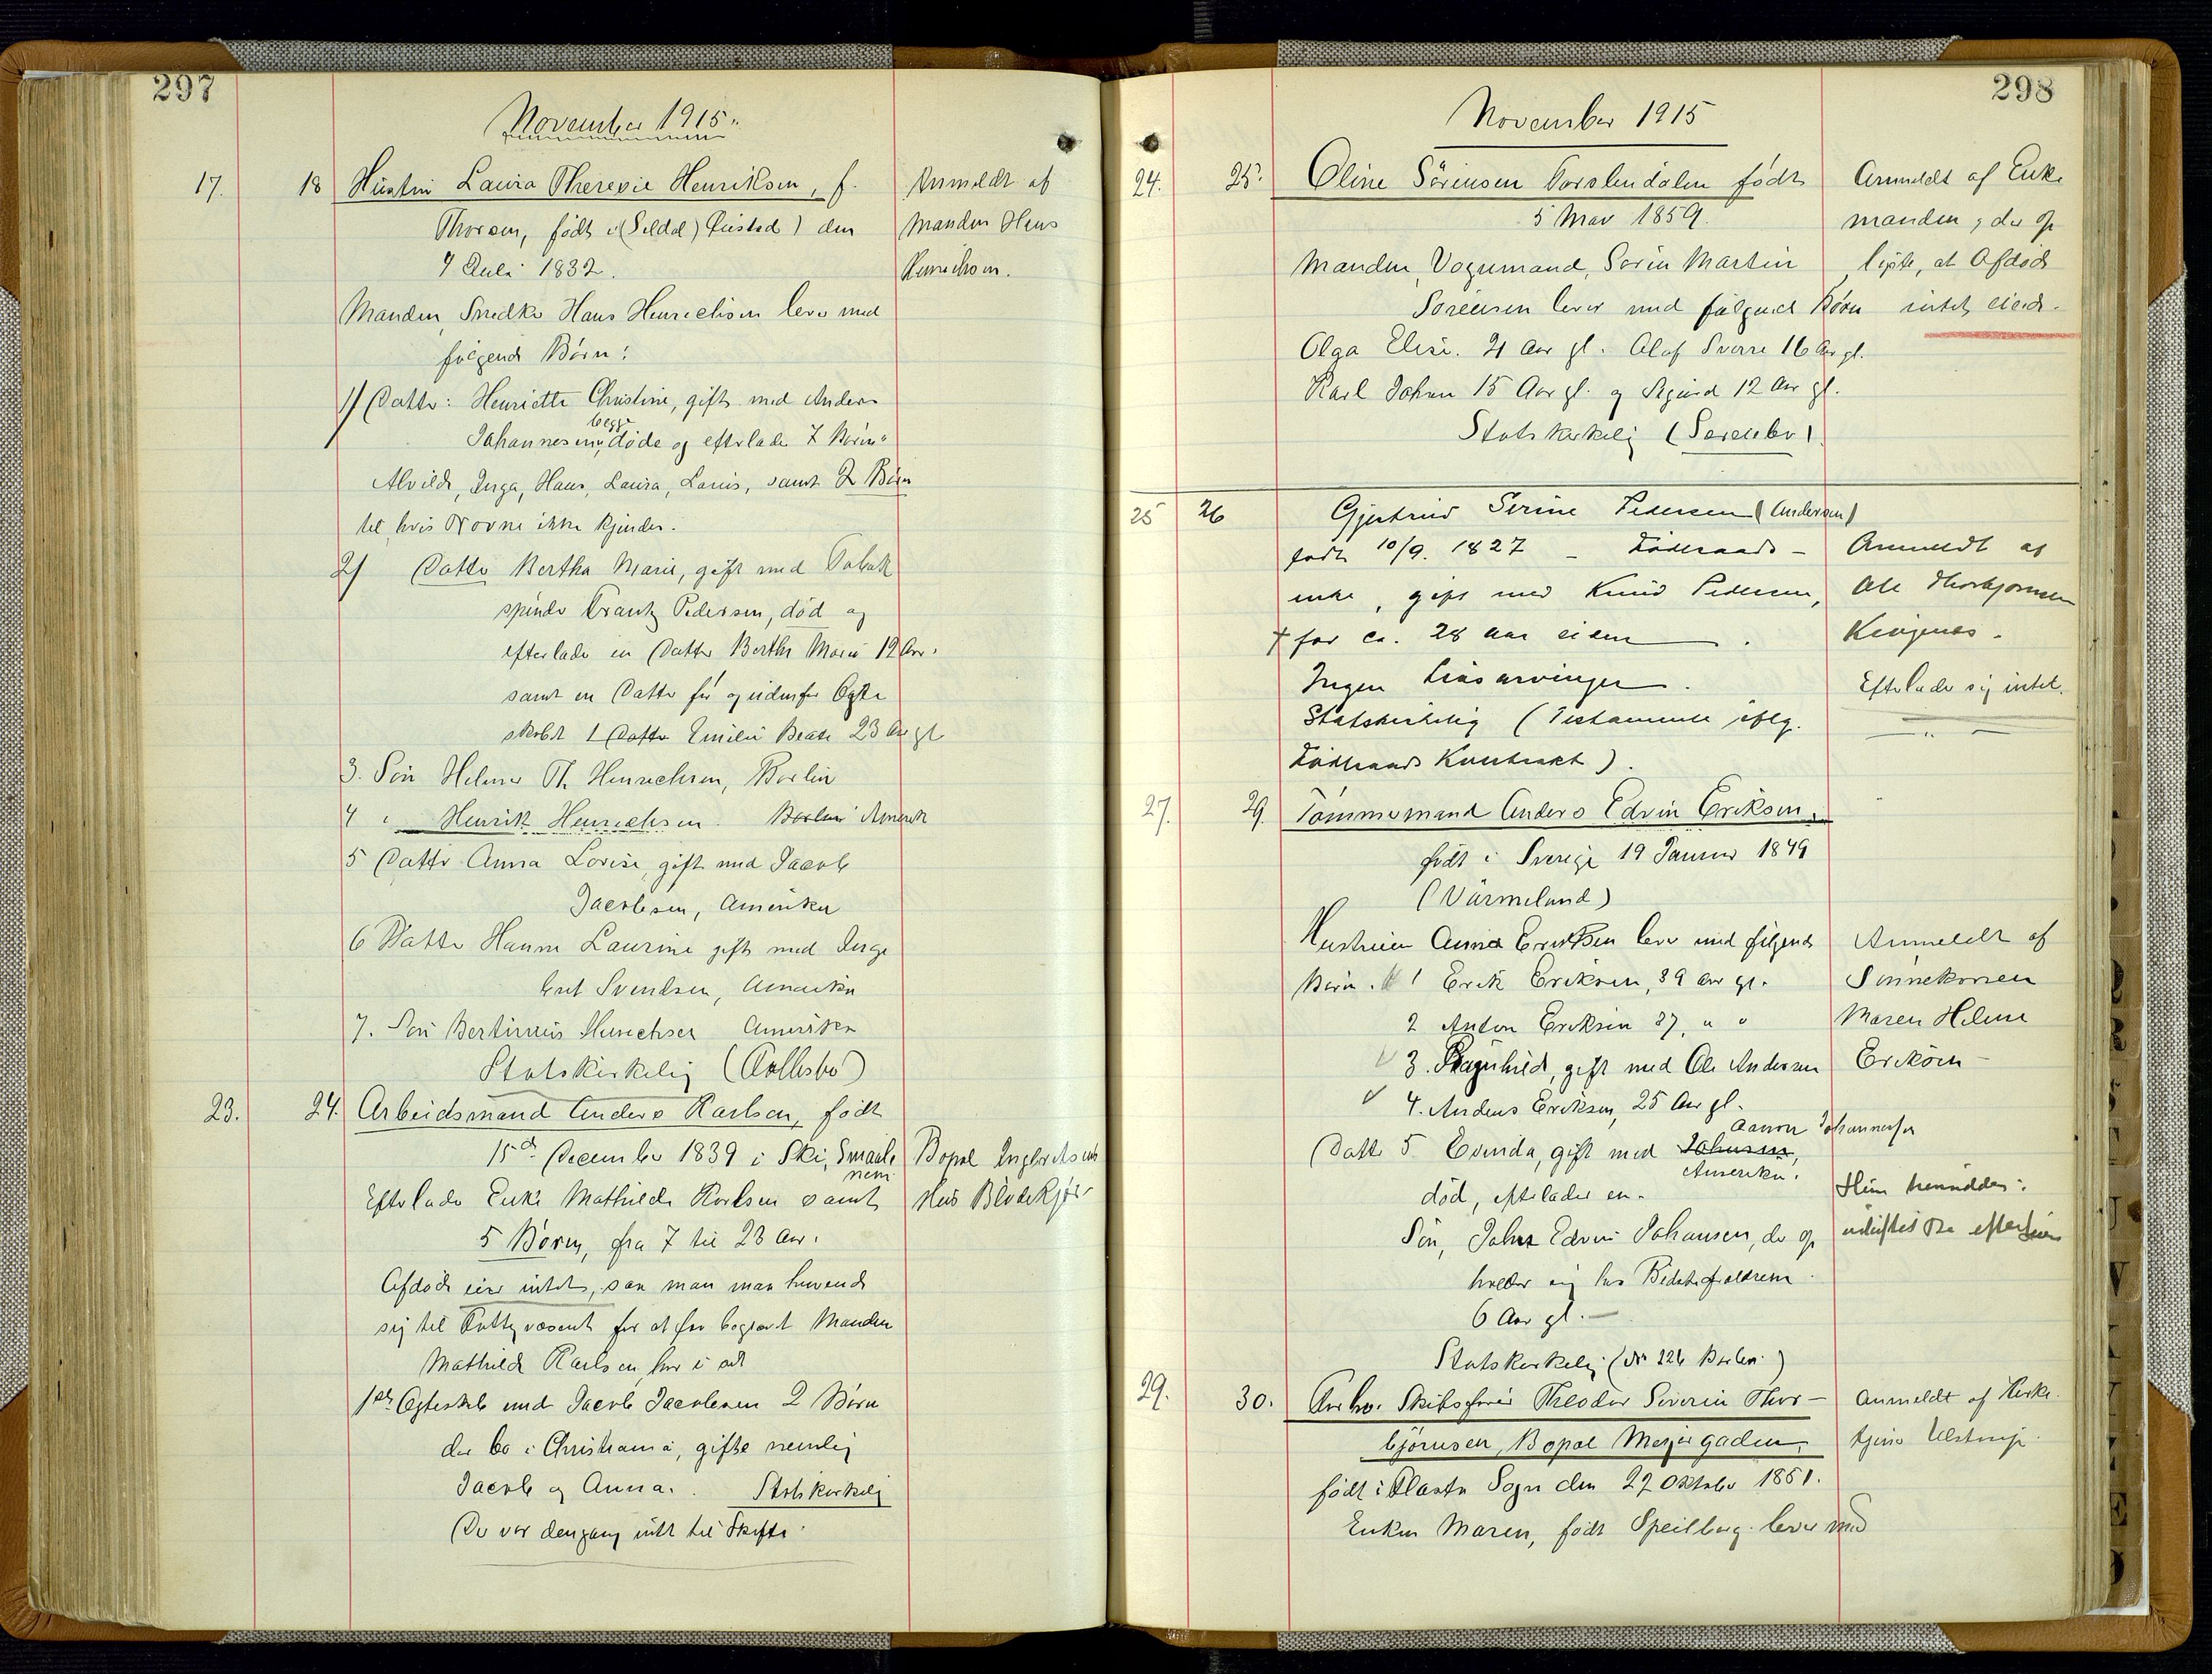 297
November 1915.
17. 18 Hustru Laura Theresie Henriksen, f. Anmeldt af
Thorsen, født i (Seldal) den Manden Hans
7 Juli 1832. Henrichsen.
Manden, Snedker Hans Henrichsen lever med
følgende Børn:
1/ Datter: Henriette Christine, gift med Anders
Johannesen, begge døde og efterlader 7 Børn
Alvilde, Inga, Hans, Laura, Laurits, samt 2 Børn
til, hvis Navne ikke kjendes.
2/ Datter Bertha Marie, gift med Tobak
spinder Frantz Pedersen, død og
efterlader en Datter Bertha Marie 12 Aar.
samt en Datter før og udenfor Egte
skabet 1 Datter Emilie Beate 23 Aar gl
3. Søn Helmer Th. Henrichsen, Borlin
4 " Henrik Henrichsen. Borlin Amerik
5 Datter Anna Lovise, gift med Jacob
Jacobsen, Amerika
6 Datter Hanna Laurine gift med Inge
bret Svendsen, Amerika
7. Søn Bertinius Henrichsen Amerika
Statskirkelig
23. 24. Arbeidsmand Anders Karlsen, født
15de December 1839 i Ski, Smaale Bopæl Ingbretsens
nene
Efterlader Enke Mathilde Karlsen samt Hus Blødekjær
5 Børn, fra 7 til 23 Aar.
Afdøde eier intet, saa man maa henvende
sig til Fattigvæsenet for at faa begravet Manden
Mathilde Karlsen har i sit
1ste Egteskab med Jacob Jacobsen 2 Børn
der bo i Christiania, gifte nemlig
Jacob og Anna. Statskirkelig
Der var dengang intet til Skifte.
298
November 1915
24. 25. Oline Sørensen Torslundalen født Anmeldt af Enke
5 Mar 1859. manden, der op
Manden, Vognmand, Søren Martin lyste, at Afdøde
Sørensen lever med følgende Børn intet eiede.
Olga Elise. 21 Aar gl. Olaf Sverre 16 Aar gl.
Karl Johan 15 Aar gl. og Sigurd 12 Aar gl.
Statskirkelig
25 26 Gjertrud Serine Pedersen (Andersen)
født 10/9. 1827 – Føderaads – Anmeldt af
enke, gift med Knud Pedersen, Ole Thorbjørnsen
† for ca. 28 aar siden. Kragenes.
Ingen Livsarvinger. Efterlader sig intet.
Statskirkelig (Testamente iflg.
Føderaads Kontrakt).
27. 29. Tømmermand Anders Edvin Eriksen,
født i Sverige 19 Januar 1849
(Värmeland)
Hustruen Anna Eriksen lever med følgende Anmeldt af
Børn. 1 Erik Eriksen, 39 Aar gl. Sønnekonen
2 Anton Eriksen 37, " " Maren Helene
3. Ragnhild, gift med Ole Andersen Eriksen
4. Anders Eriksen, 25 Aar gl.
Aanon Johannesen
Datter 5 Evinda, gift med Johnsen,
Amerika.
død, efterlader en
Søn, John Edvin Johansen, der op
holder sig hos Bedsteforældrene.
6 Aar gl.
Statskirkelig (No 226 Borlin)
29. 30. Forhv. Skibsfører Theodor Severin Thor- Anmeldt af Kirke
bjørnsen, Bopæl Meiergaden, tjener Ulstrup
født i Sogn den 27 Oktober 1851.
Enken Maren, født Speilberg lever med